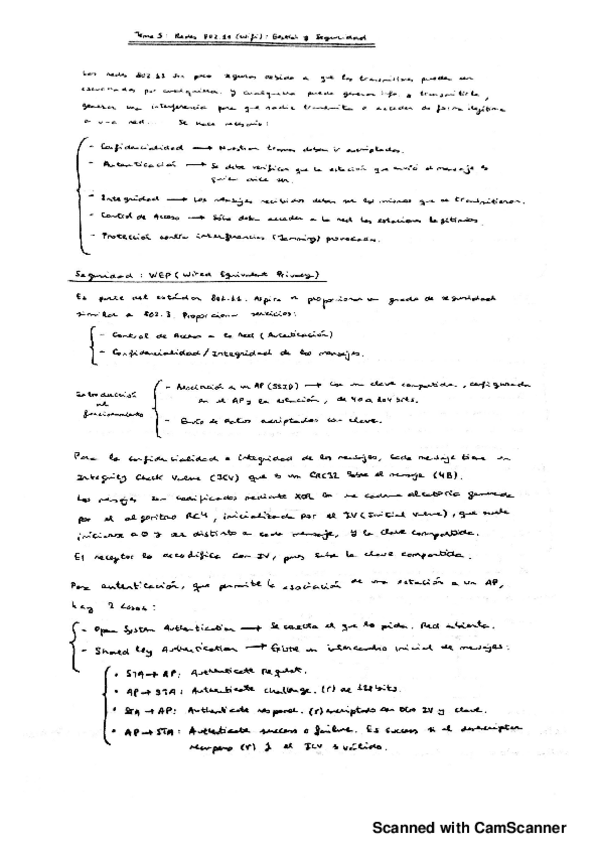 Tema 5: Redes 802.11 (Wifi): Gestión y Seguridad
Las redes 802.11 son poco seguras debido a que las transmisiones pueden ser
escuchadas por cualquiera. y cualquiera puede generar info. y transmitirla,
generar una interferencia para que nadie transmita o acceder de forma ilegítima
a una red... Se hace necesario:
- Confidencialidad → Nuestras tramas deben ir encriptadas.
- Autenticación → Se debe verificar que la estación que envió el mensaje es
quien dice ser.
- Integridad → Los mensajes recibidos deben ser los mismos que se transmitieron.
- Control de Acceso → Sólo deben acceder a la red las estaciones legítimas.
- Protección contra interferencias (Jamming) provocadas.
Seguridad: WEP (Wired Equivalent Privacy)
Es parte del estándar 802.11. Aspira a proporcionar un grado de seguridad
similar a 802.3. Proporciona servicios:
- Control de Acceso a la Red (Autenticación)
- Confidencialidad/Integridad de los mensajes.
Introducción
al
funcionamiento
- Asociación a un AP (SSID) → Con una clave compartida, configurada
en el AP y en estación, de 40 a 104 bits.
- Envío de datos encriptados con clave.
Para la confidencialidad e integridad de los mensajes, cada mensaje tiene un
Integrity Check Value (ICV) que es un CRC32 sobre el mensaje (4B).
Los mensajes son codificados mediante XOR con una cadena aleatoria generada
por el algoritmo RC4, inicializada por el IV (Initial Value), que suele
iniciarse a 0 y ser distinto a cada mensaje, y la clave compartida.
El receptor lo decodifica con IV, pues sabe la clave compartida.
Para autenticación, que permite la asociación de una estación a un AP,
hay 2 casos:
- Open System Authentication → Se acepta el que lo pida. Red abierta.
- Shared Key Authentication → Existe un intercambio inicial de mensajes:
• STA → AP: Authenticate Request.
• AP → STA: Authenticate challenge. (r) de 128 bits.
• STA → AP: Authenticate respond. (r) encriptado con otro IV y clave.
• AP → STA: Authenticate success o failure. Es success si al desencriptar
recupero (r) y el ICV es válido.
Scanned with CamScanner